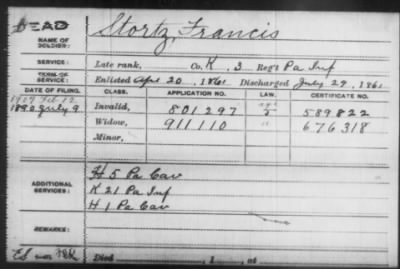 DEAD
NAME OF SOLDIER: Stortz, Francis
SERVICE: Late rank, Co. K, 3 Reg't Pa Inf
TERM OF SERVICE: Enlisted Apr 20, 1861 Discharged July 29, 1861
DATE OF FILING. CLASS. APPLICATION NO. LAW. CERTIFICATE NO.
1907 Feb 12
1890 July 9 Invalid, 801297 589822
Widow, 911110 676318
Minor,
ADDITIONAL SERVICES:
H 5 Pa Cav
K 21 Pa Inf
H 1 Pa Cav
REMARKS:
Died , 1 , at